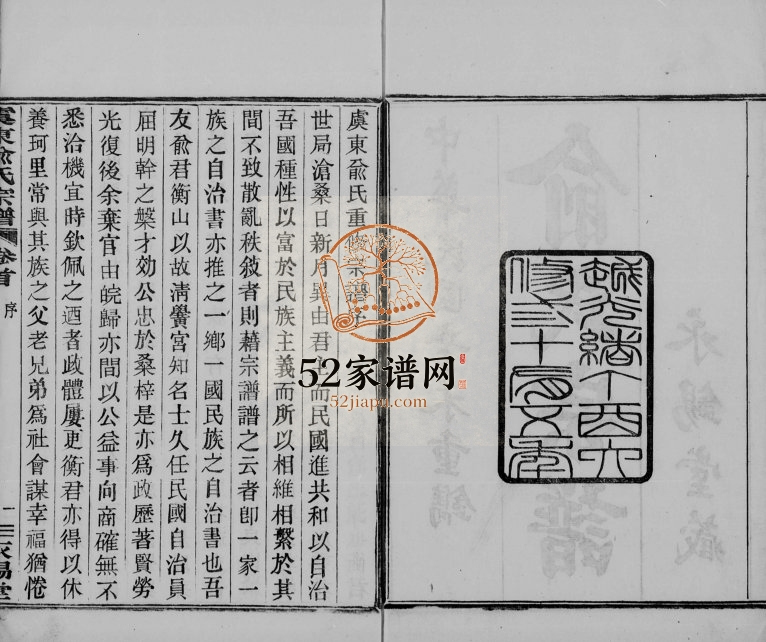 虞東兪氏重修宗譜序
世局滄桑日新月異由君主而民國進共和以自治
吾國種性以富於民族主義而所以相維相繫於其
間不致散亂秩敍者則藉宗譜譜之云者卽一家一
族之自治書亦推之一鄉一國民族之自治書也吾
友兪君衡山以故清黌宮知名士久任民國自治員
屈明幹之槃才効公忠於桑梓是亦爲政歷著賢勞
光復後余棄官由皖歸亦間以公益事向商確無不
悉洽機宜時欽佩之迺者政體屢更衡君亦得以休
養珂里常與其族之父老兄弟爲社會謀幸福猶惓
虞東兪氏宗譜 卷首 序
一
永錫堂
永錫堂藏
52家谱网
52jiapu.com